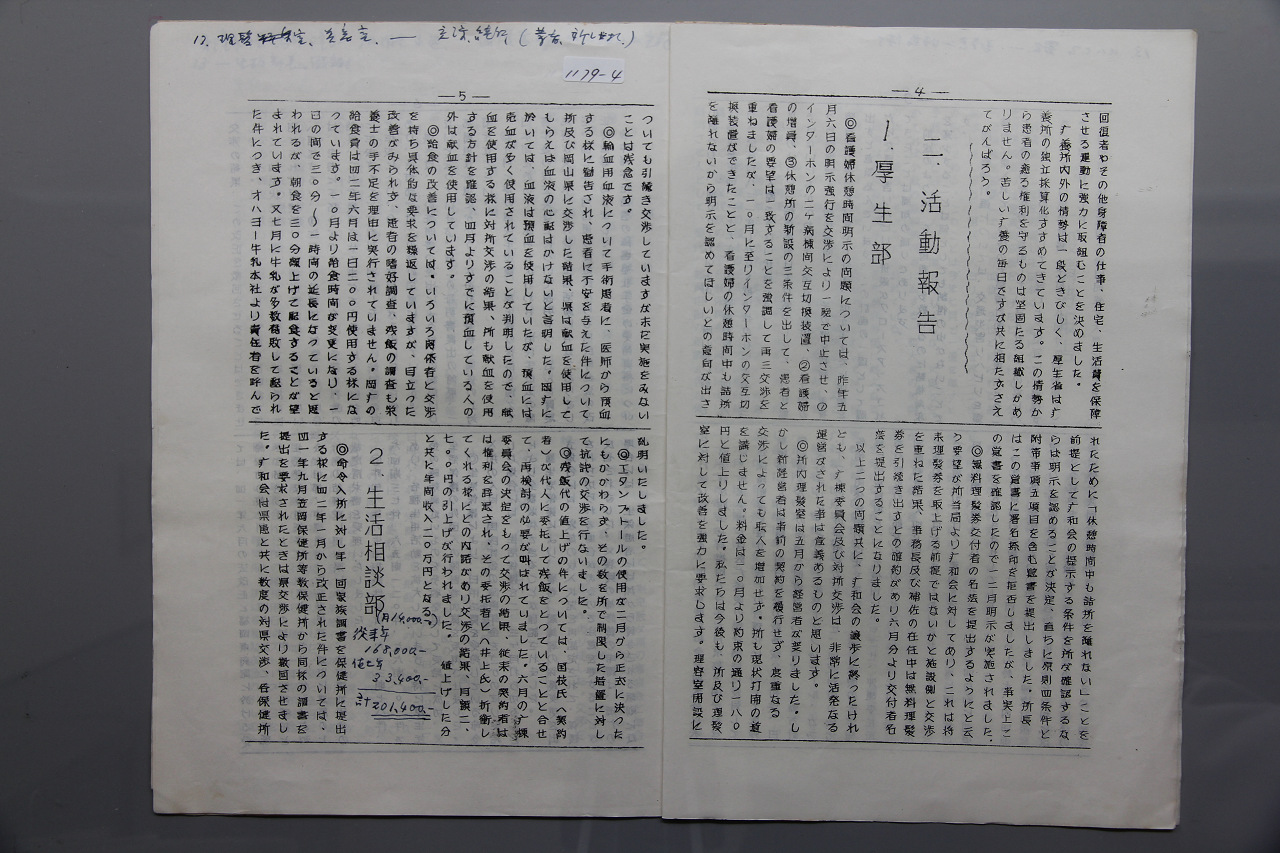 1179-4
—4—
回復者やその他身障者の仕事、住宅、生活費を保障
させる運動に強力に取組むことを決めました。
疒養所内外の情勢は一段ときびしく、厚生省は疒
養所の独立採算化すすめてきています。この情勢か
ら患者の療る権利を守るものは堅固たる組織しかあ
りません。苦しい疒養の毎日ですが共に相たずさえ
てがんばろう。
二、活動報告
1.厚生部
◎看護婦休憩時間明示の問題については、昨年五
月六日の明示強行を交渉により一応で中止させ、①
インターホンの二ヶ病棟間交互切換装置、②看護婦
の増員、③休憩所の新設の三条件を出して、患者と
看護婦の要望は一致することを強調して再三交渉を
重ねましたが、一〇月に至りインターホンの交互切
換装置ができたことと、看護婦の休憩時間中も詰所
を離れないから明示を認めてほしいとの意向が出さ
れたために「休憩時間中も詰所を離れない」ことを
前提として疒和会の提示する条件を所が確認するな
らば明示を認めることが決定、直ちに原則四条件と
附帯事項五項目を含む覚書を提出しました。所長
はこの覚書に署名捺印を拒否しましたが、事実上こ
の覚書を確認したので一二月明示が実施されました。
◎無料理髪券交付者の名簿を提出するようにと云
う要望が所当局より疒和会に対してあり、これは将
来理髪券を取上げる前提ではないかと施設側と交渉
を重ねた結果、事務長及び補佐の在任中は無料理髪
券を引続き出すとの確約があり六月分より交付者名
簿を提出することになりました。
以上二つの問題共に、疒和会の譲歩に終ったけれ
ども、疒棟委員会及び対所交渉は、非常に活発なる
運営がされた事は意義あるものと思います。
◎所内理髪室は五月から経営者が変りました。し
かし新経営者は事前の契約を履行せず、度重なる
交渉によっても収入を増加せず。所も現状打開の道
を講じません。料金は一〇月より約束の通り一八〇
円と値上りしました。私たちは今後も、所及び理髪
室に対して改善を強力に要求します。理容室開設に
—5—
ついても引続き交渉していますがまだ実施をみない
ことは残念です。
◎輸血用血液について手術患者に、医師から預血
する様に勧告され、患者に不安を与えた件について、
所及び岡山県に交渉した結果、県は献血を使用して
しらえば血液の心配はかけないと言明した。岡疒に
於いては、血液は預血を使用していたが、預血には
売血が多く使用されていることが判明したので、献
血を使用する様に対所交渉の結果、所も献血を使用
する方針を確認、四月よりすでに預血している人の
外は献血を使用しています。
◎給食の改善については、いろいろ関係者と交渉
を持ち具体的な要求を繰返していますが、目立った
改善がみられず、患者の嗜好調査、残飯の調査も栄
養士の手不足を理由に実行されていません。岡疒の
給食費は四二年六月は一日二〇〇円使用する様にな
っています。一〇月より給食時間が変更になり、一
日の間で三〇分〜一時間の延長になっていると思
われるが、朝食を三〇分繰上げて配食することが望
まれています。又七月に牛乳が多数腐敗して配られ
た件につき、オハヨー牛乳本社より責任者を呼んで
糺明いたしました。
◎エタンブトールの使用が二月から正式に決った
にもかかわらず、その数を所で制限した措置に対し
て抗議の交渉を行ないました。
◎残飯代の値上げの件については、国枝氏(契約
者)が代人に委托して残飯をとっていることと合せ
て、再検討の必要が叫ばれていました。六月の疒棟
委員会の決定をもって交渉の結果、従来の契約者は
は権利を辞退され、その委托者と(井上氏)折衝し
てくれる様にとの内諾があり交渉の結果、月額二、
七〇〇円の引上げが行われました。値上げした分
と共に年間収入二〇万円となる。
(月14,000-で)
従来年
168,000-
値上
33,400-
計201,400-
2.生活相談部
◎命令入所に対し年一回家族調書を保健所に提出
する様に四二年一月から改正された件については、
四一年九月笠岡保健所等数保健所から同様の調書を
提出を要求されたときは県交渉により撤回させまし
た。疒和会は県患と共に数度の対県交渉、各保健所